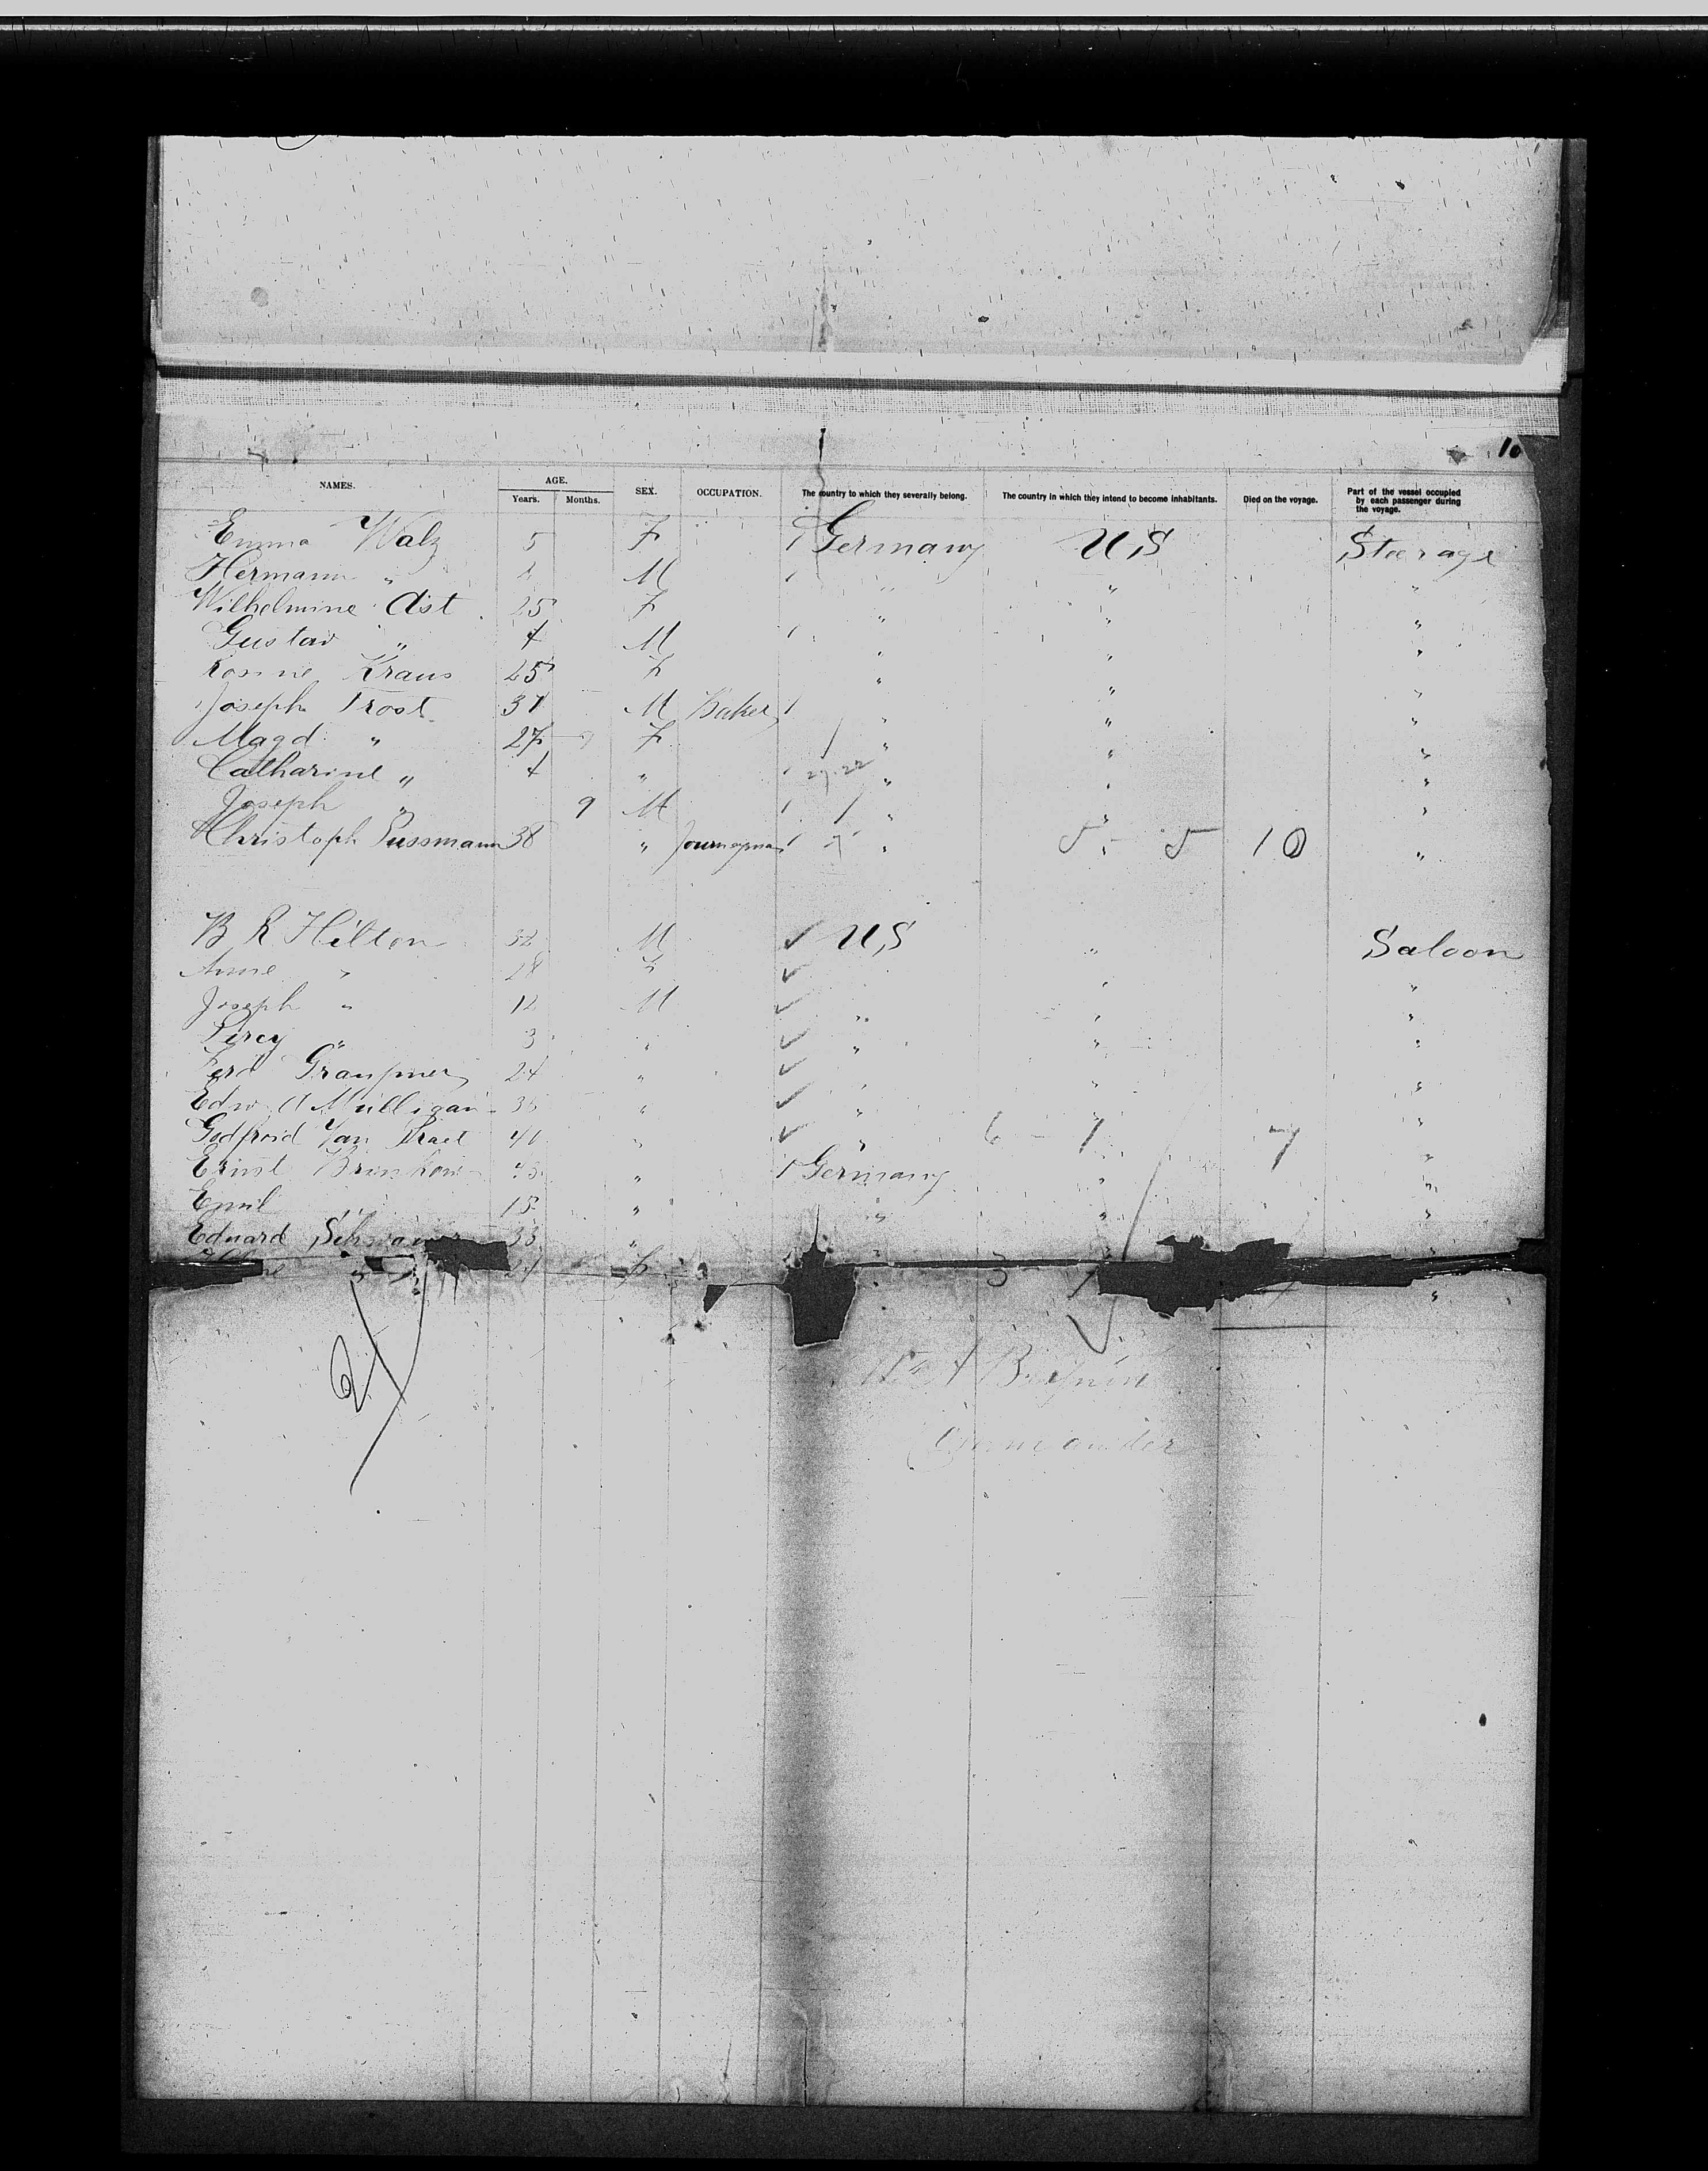 10
NAMES. AGE. Years. Months. SEX. OCCUPATION. The country to which they severally belong. The country in which they intend to become inhabitants. Died on the voyage. Part of the vessel occupied by each passenger during the voyage.
Emma Walz 5 F 1 Germany U,S Steerage
Hermann " M " " "
Wilhelmine Ast 25 F " " "
Gustav " 4 M " " "
Rosine Kraus 25 F " " "
Joseph Trost 37 M Baker 1 " " "
Magd " 27 F " " "
Catharine " 4 " 29.22 " " "
Joseph " 9 M " " "
Christoph Pussmann 38 " " 5 - 5 10 "
B R Hilton 32 M U,S " Saloon
Anne " 28 F " "
Joseph " 12 M " " "
Percy " 3 " " " "
Ferd Graupner 24 " " " "
Edw. A Mulligan 35 " " " "
Godfroid Van Praet 41 " " 6 - 1 7 "
Ernst 43 " 1 Germany " "
Emil " 15 " " " "
Eduard 33 " " "
F 3 "
Commander